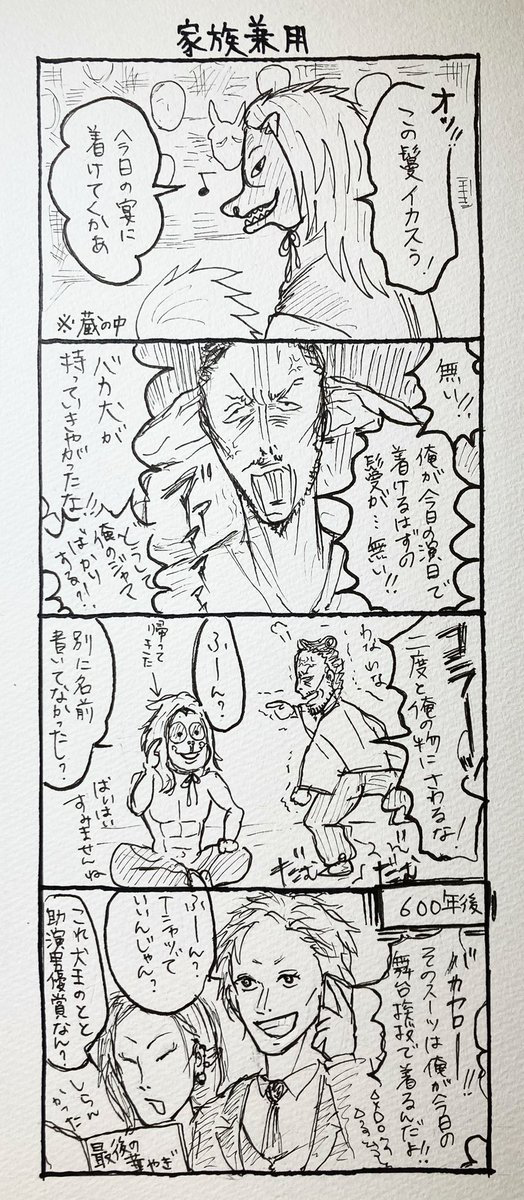 家族兼用
オッ!!
この鬘イカスぅ!
今日の宴に
着けてくかあ
※蔵の中
無い!!
俺が今日の演目で
着けるはずの
鬘が…無い!!
バカ犬が
持っていきやがったな!!
どうして
俺のジャマ
ばかり
する?!
コラーー
二度と俺の物にさわるな!
わなわな
ふーん?
帰って
きた
別に名前
書いてなかったし?
はいはい
すみませんね
だむ
だむ
600年後
バカヤロー!!
そのスーツは俺が今日の
舞台挨拶で着るんだよ!!
ふーん?
Tシャツで
いいんじゃん?
これ犬王のとと
助演男優賞なん?
しらん
かった
最後の